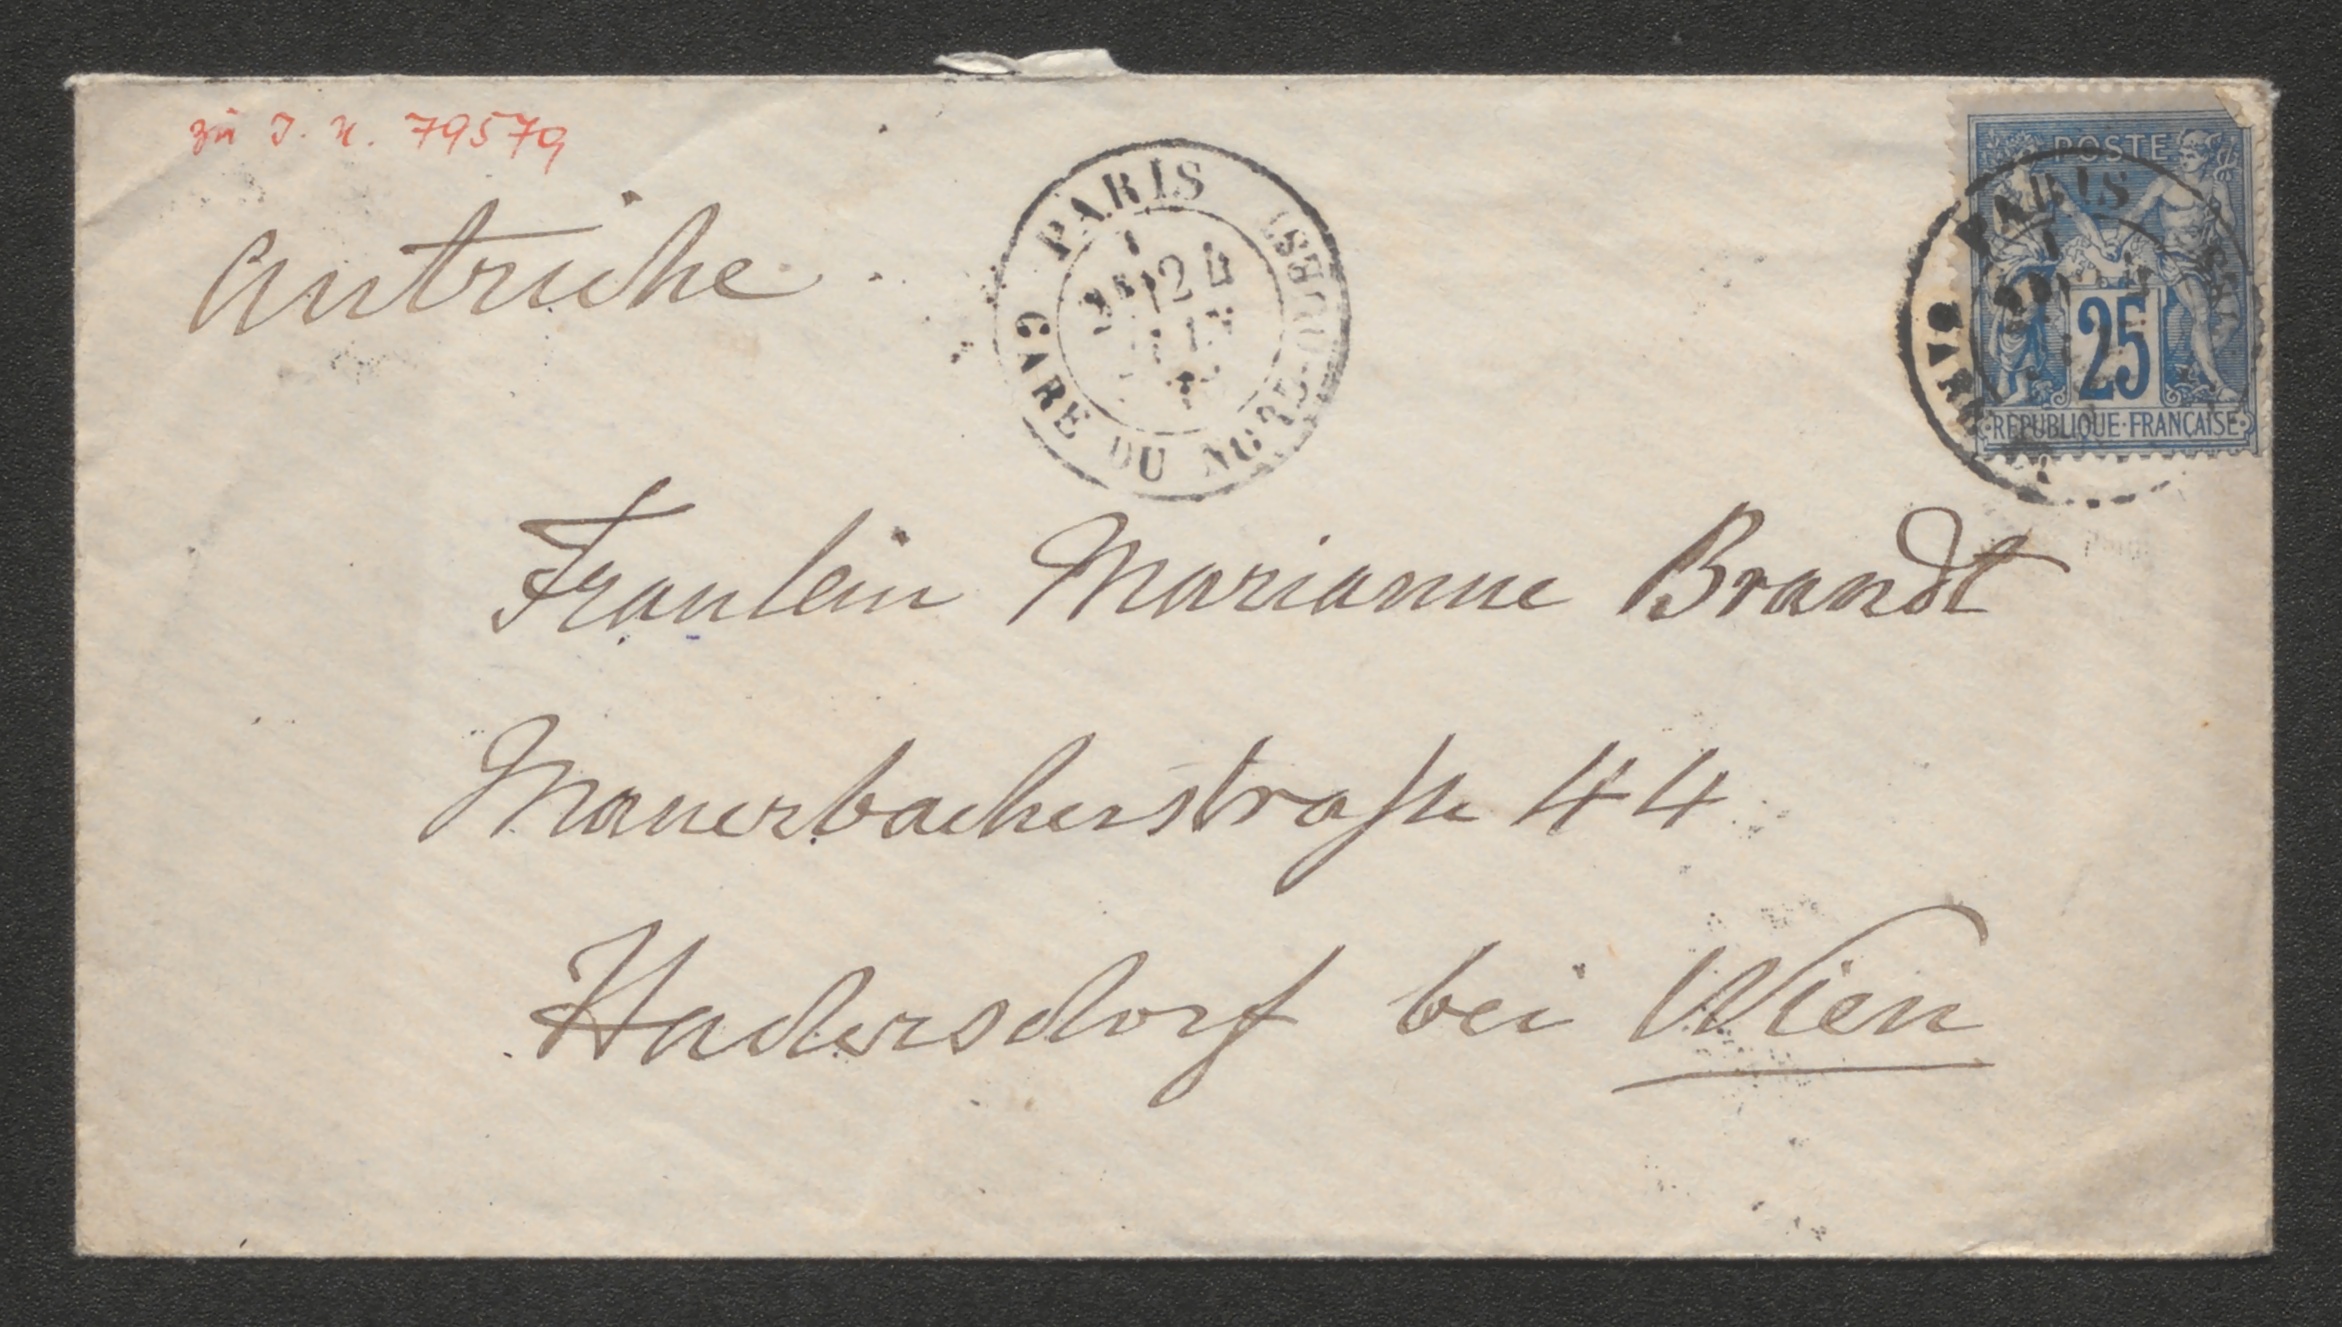 zu I. N. 79579
Autriche
PARIS
GARE DU NORD
POSTE
PARIS
25
REPUBLIQUE·FRANÇAISE
Fraulein Marianne Brandt
Mauerbacherstraße 44
Hadersdorf bei Wien